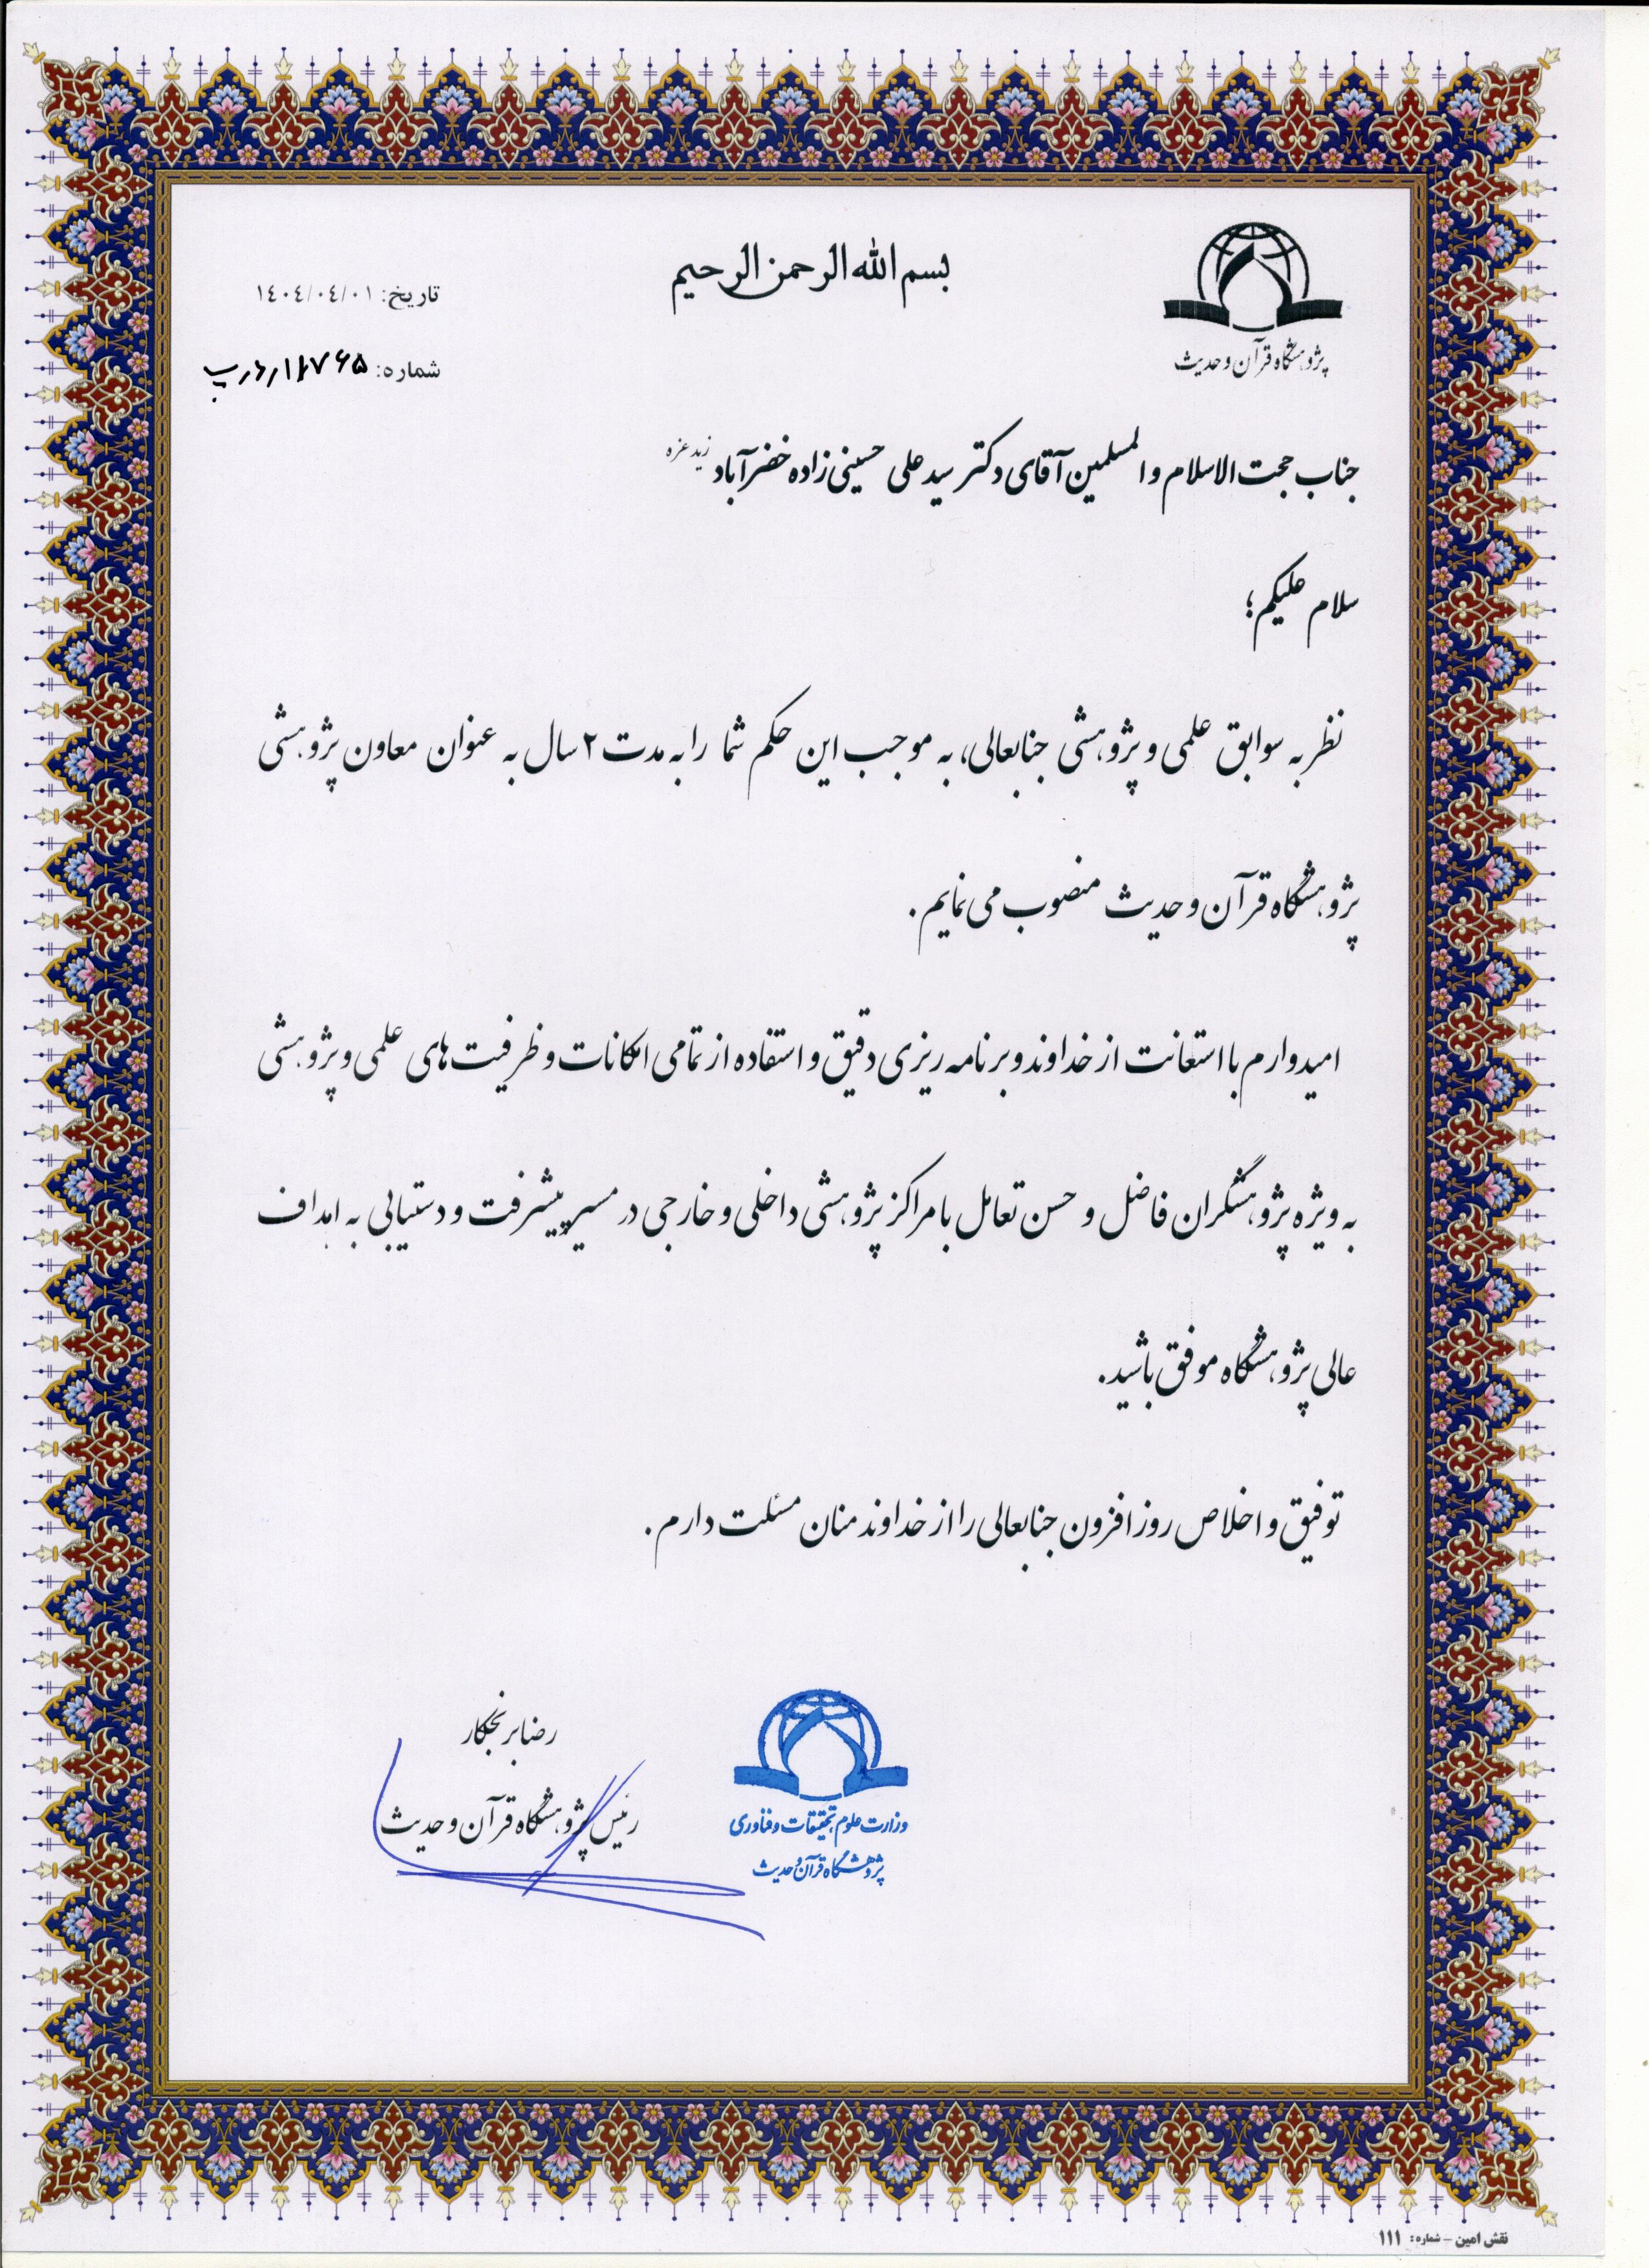 بسم الله الرحمن الرحیم
پژوهشگاه قرآن و حدیث
تاریخ: ۱۴۰۴/۰۴/۰۱
شماره:
جناب حجت الاسلام والمسلمین آقای دکتر سید علی حسینی زاده خضرآباد زید عزه
سلام علیکم؛
نظر به سوابق علمی و پژوهشی جنابعالی، به موجب این حکم شما را به مدت ۲ سال به عنوان معاون پژوهشی
پژوهشگاه قرآن و حدیث منصوب می نمایم.
امیدوارم با استعانت از خداوند و برنامه ریزی دقیق و استفاده از تمامی امکانات و ظرفیت های علمی و پژوهشی
به ویژه پژوهشگران فاضل و حسن تعامل با مراکز پژوهشی داخلی و خارجی در مسیر پیشرفت و دستیابی به اهداف
عالی پژوهشگاه موفق باشید.
توفیق و اخلاص روزافزون جنابعالی را از خداوند منان مسئلت دارم.
رضا برنجکار
رئیس پژوهشگاه قرآن و حدیث
وزارت علوم، تحقیقات و فناوری
پژوهشگاه قرآن و حدیث
نقش امین - شماره: ۱۱۱